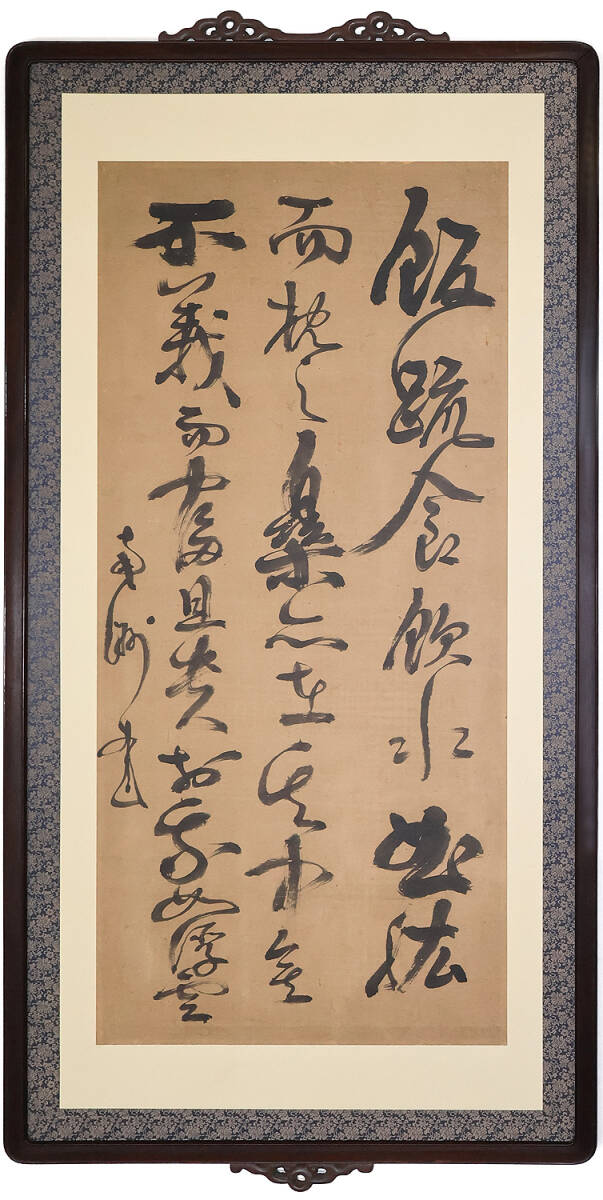 飯疏食飲水曲肱
而枕之樂亦在其中矣
不義而富且貴於我如浮雲
南洲書